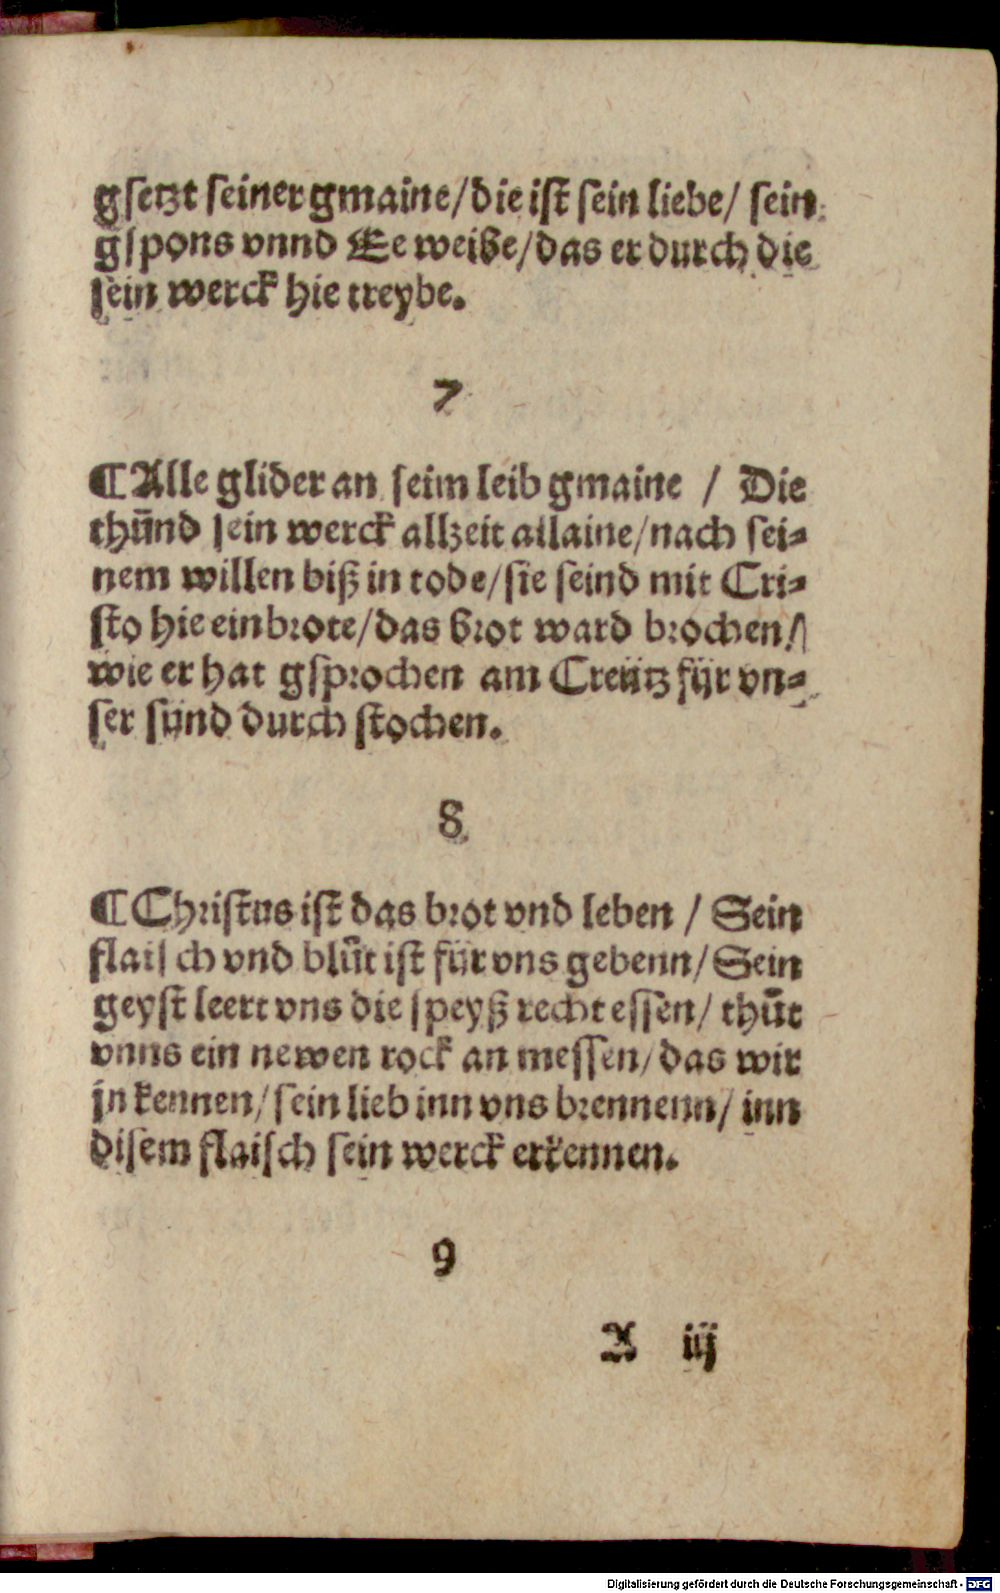 gsetzt seiner gmaine/die ist sein liebe/ sein
gspons vnnd Ee weibe/das er durch die
sein werck hie treybe.
7
¶Alle glider an seim leib gmaine / Die
thuͤnd sein werck allzeit allaine/nach sei-
nem willen biß in tode/sie seind mit Cri-
sto hie ein brote/das brot ward brochen/
wie er hat gsprochen am Creütz für vn-
ser sünd durch stochen.
8
¶Christus ist das brot vnd leben / Sein
flaisch vnd bluͤt ist für vns gebenn/ Sein
geyst leert vns die speyß recht essen/ thuͤt
vnns ein newen rock an messen/das wir
jn kennen/sein lieb inn vns brennenn/ inn
disem flaisch sein werck erkennen.
9
A iij
Digitalisierung gefördert durch die Deutsche Forschungsgemeinschaft - DFG